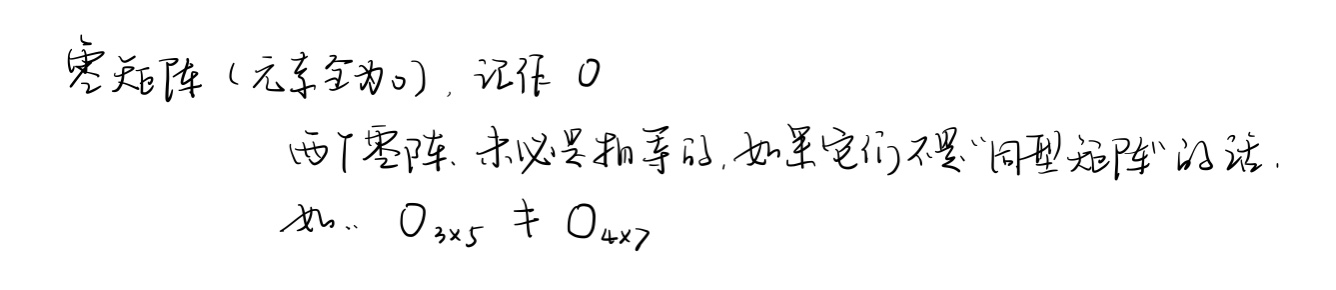 零矩阵（元素全为0），记作 O
两个零阵、未必是相等的，如果它们不是“同型矩阵”的话．
如：O₃ₓ₅ ≠ O₄ₓ₇